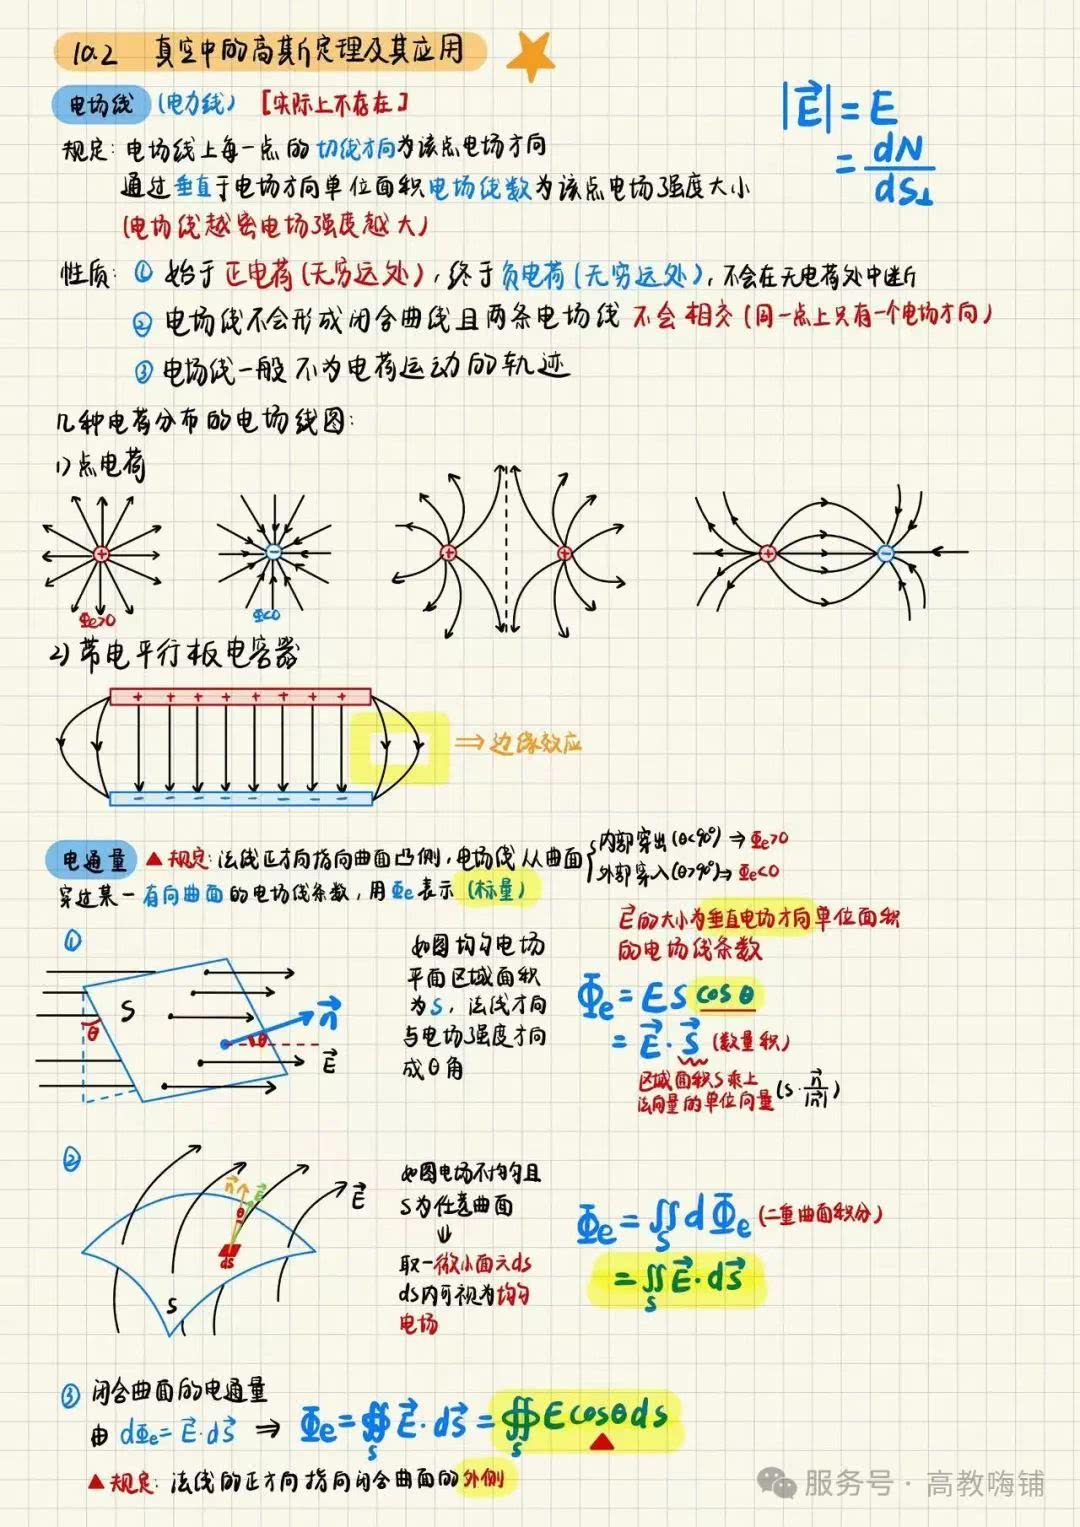 10.2 真空中的高斯定理及其应用
电场线 (电力线) [实际上不存在]
|E⃗| = E
= dN/dS⊥
规定: 电场线上每一点的切线方向为该点电场方向
通过垂直于电场方向单位面积电场线数为该点电场强度大小
(电场线越密电场强度越大)
性质: ① 始于正电荷(无穷远处), 终于负电荷(无穷远处), 不会在无电荷处中断
② 电场线不会形成闭合曲线且两条电场线 不会相交(同一点上只有一个电场方向)
③ 电场线一般不为电荷运动的轨迹
几种电荷分布的电场线图:
1) 点电荷
+
−
+ +
+ −
Φe>0
Φ<0
2) 带电平行板电容器
+ + + + + + + +
− − − − − − − −
⇒ 边缘效应
电通量 ▲ 规定: 法线正方向指向曲面凸侧, 电场线从曲面
内部穿出(θ<90°) ⇒ Φe>0
外部穿入(θ>90°) ⇒ Φe<0
穿过某一有向曲面的电场线条数, 用Φe表示 (标量)
E⃗的大小为垂直电场方向单位面积
的电场线条数
①
S
θ
n⃗
θ
E⃗
如图均匀电场
平面区域面积
为S, 法线方向
与电场强度方向
成θ角
Φe = ES cosθ
= E⃗·S⃗ (数量积)
区域面积S乘上
法向量的单位向量 (S·n⃗/|n⃗|)
②
n⃗
E⃗
θ
ds
E⃗
S
如图电场不均匀且
S为任意曲面
⇓
取一微小面元ds
ds内可视为均匀
电场
Φe = ∬S dΦe (二重曲面积分)
= ∬S E⃗·dS⃗
③ 闭合曲面的电通量
由 dΦe = E⃗·dS⃗ ⇒ Φe = ∯S E⃗·dS⃗ = ∯S E cosθ ds
▲
▲ 规定: 法线的正方向指向闭合曲面的外侧
服务号 · 高教嗨铺